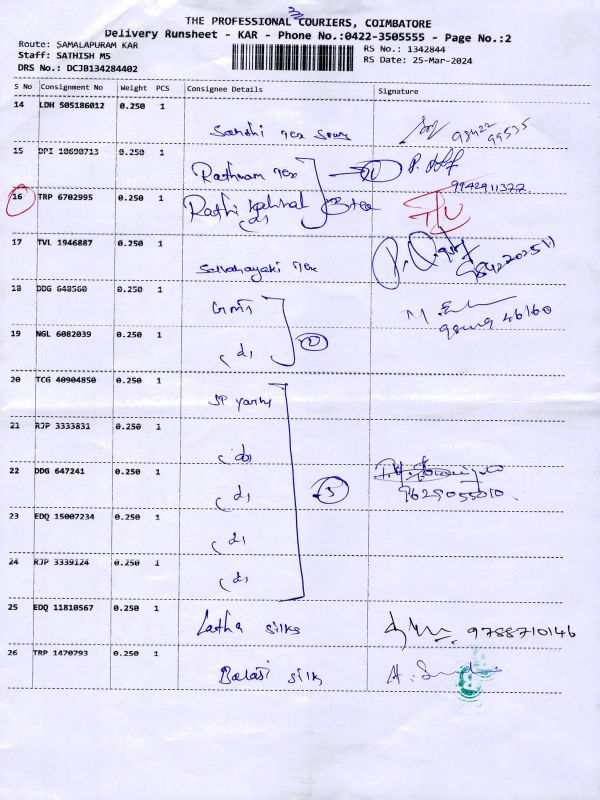 THE PROFESSIONAL COURIERS, COIMBATORE
Delivery Runsheet - KAR - Phone No.:0422-3505555 - Page No.:2
Route: SAMALAPURAM KAR
Staff: SATHISH MS
DRS No.: DCJB134284402
RS No.: 1342844
RS Date: 25-Mar-2024
S No Consignment No Weight PCS Consignee Details Signature
14 LDH 505186012 0.250 1
15 DPI 10690713 0.250 1 Rathnam Tex
16 TRP 6702995 0.250 1 Rathi
17 TVL 1946887 0.250 1 Selvanayaki Tex
18 DDG 648560 0.250 1
19 NGL 6082039 0.250 1 (d) 2
20 TCG 40904850 0.250 1 SP yarns
21 RJP 3333831 0.250 1 (do)
22 DDG 647241 0.250 1 (d) 5
9629055010
23 EDQ 15007234 0.250 1 (d)
24 RJP 3339124 0.250 1 (d)
25 EDQ 11810567 0.250 1 Latha silks 9788710146
26 TRP 1470793 0.250 1 Balaji silk